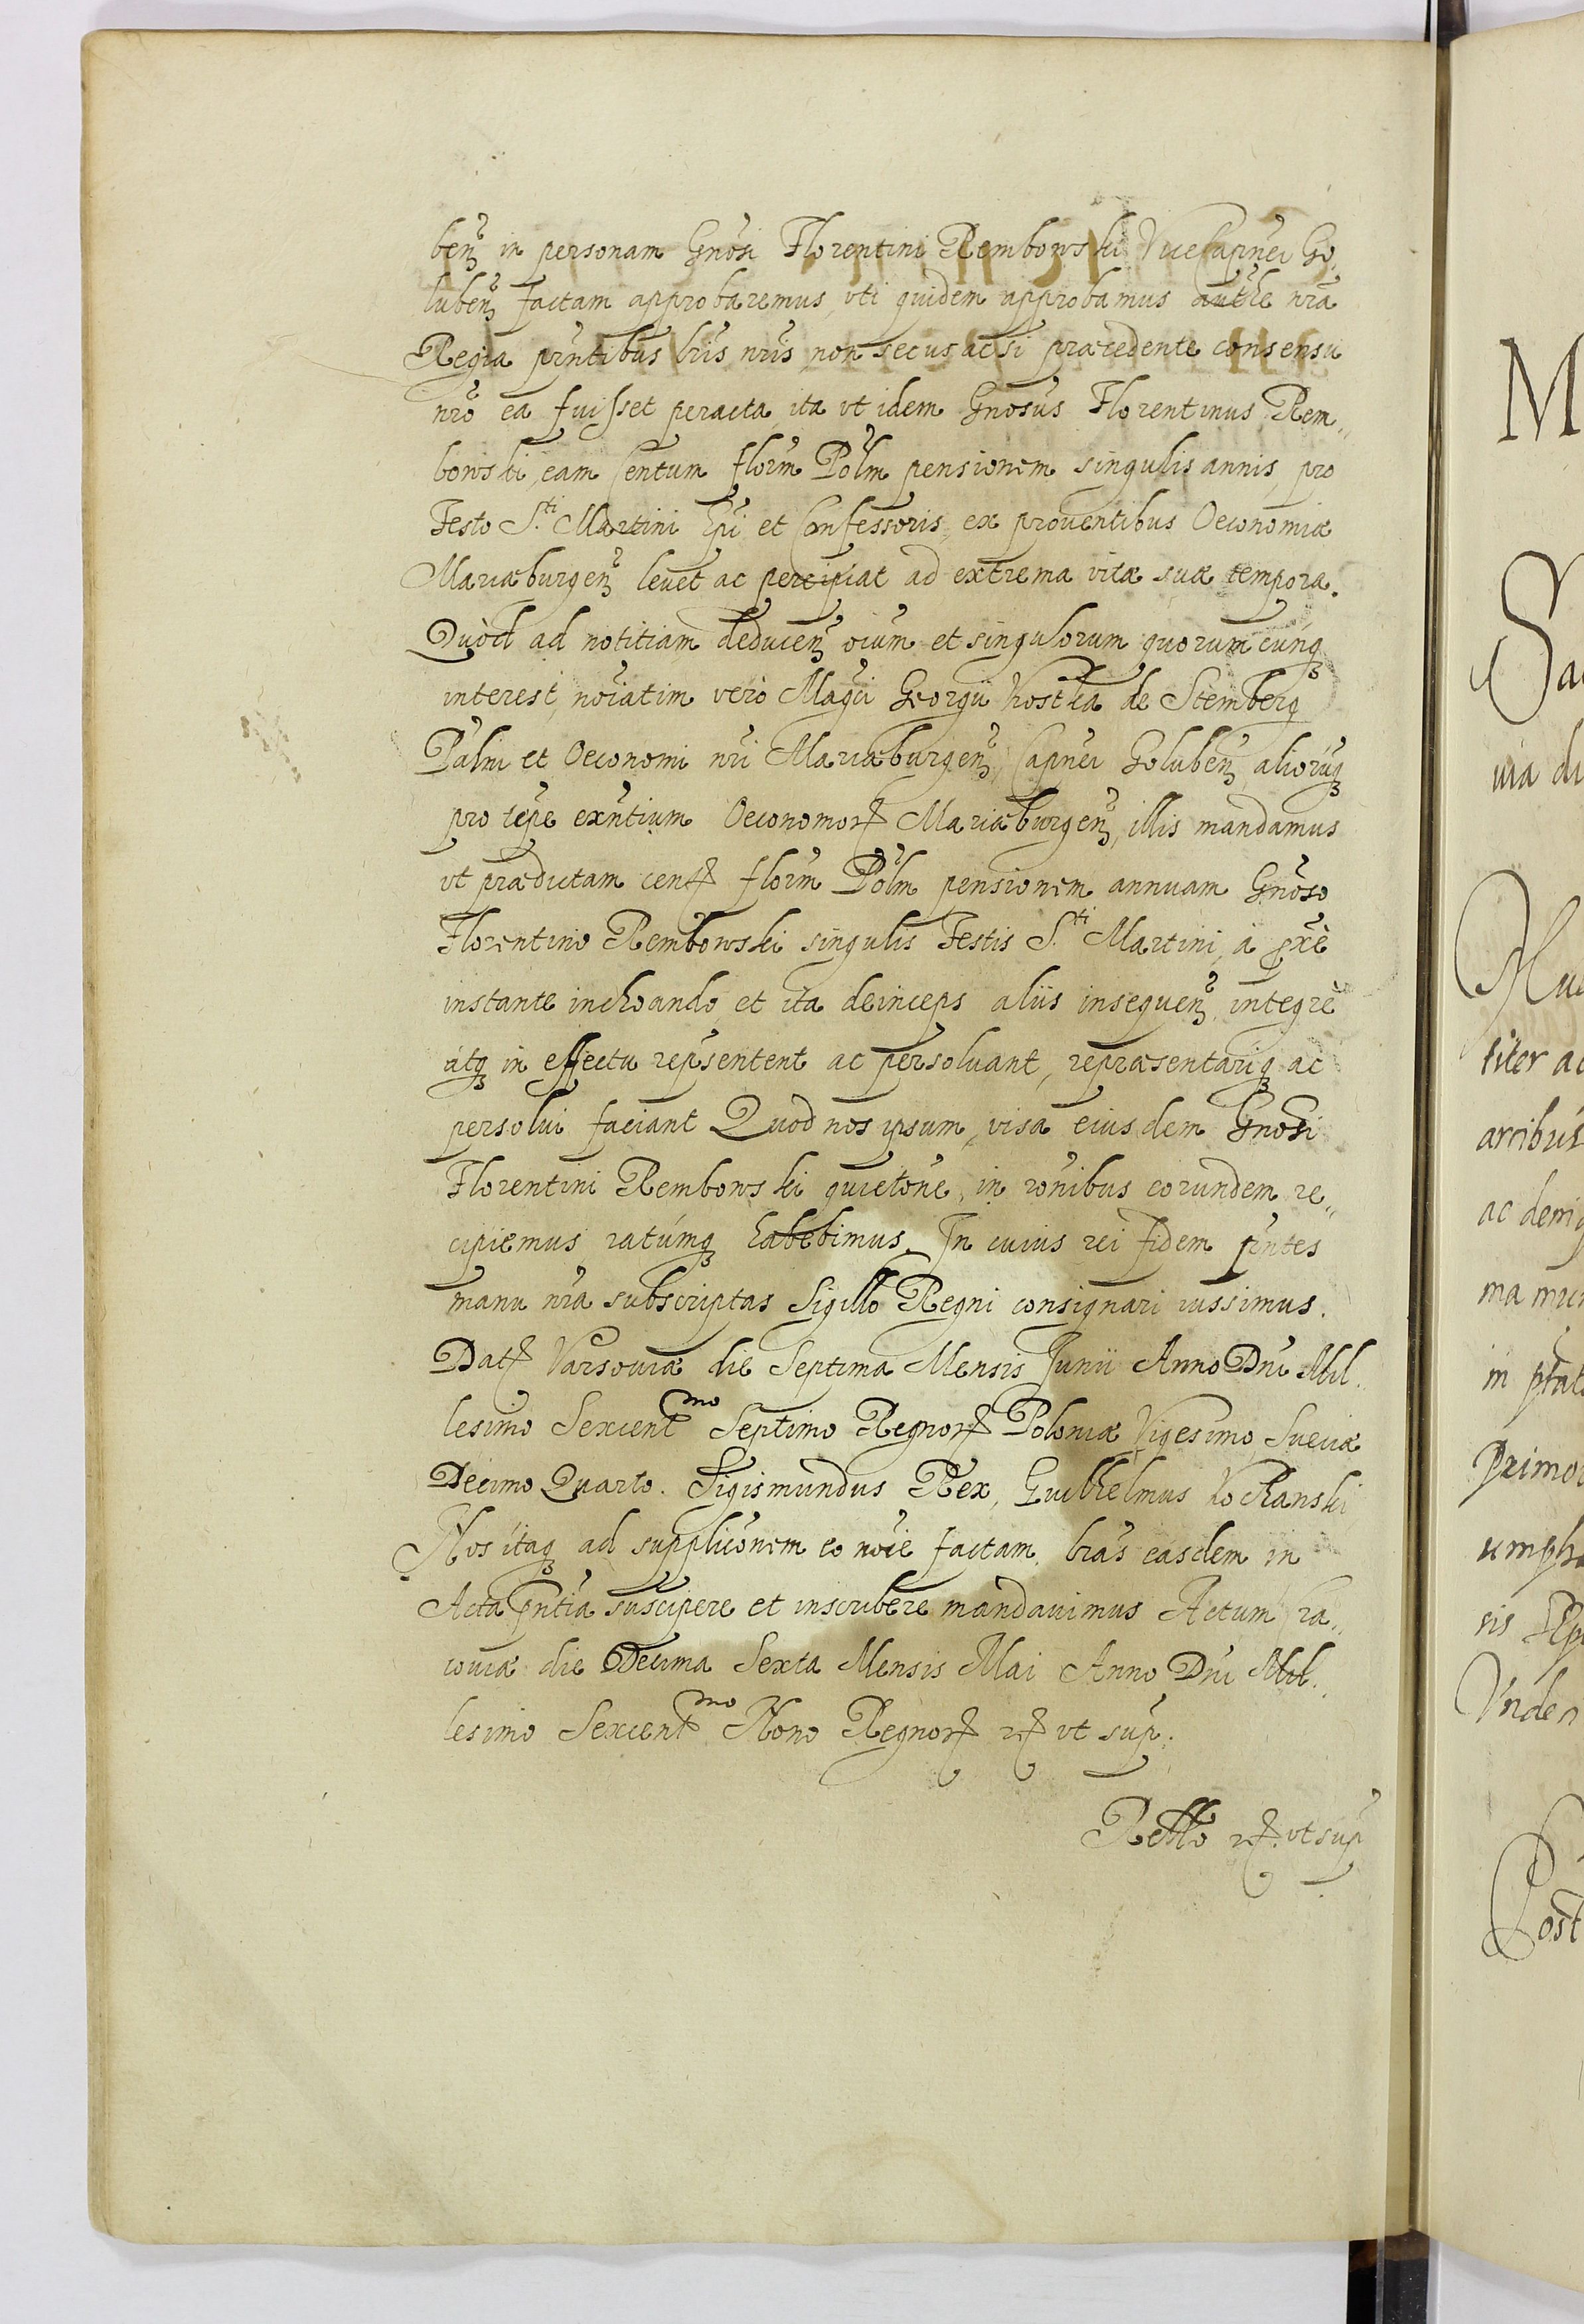 benʒ in personam Gnosi Florentini Rembowski ViceCapnei Go,
lubenʒ factam approbaremus, vti quidem approbamus authe nrã
Regia pñtibus lris nris, non secus ac si præcedente consensu
nrõ ea fuisset peracta, ita vt idem Gnosus Florentinus Rem,,
bowski, eam Centum florm Polm pensionem singulis annis, pro
Festo S.ti Martini Epi et Confessoris, ex prouentibus Oeconomiæ
Mariæburgenʒ leuet ac percipiat ad extrema vitæ suæ tempora.
Quòd ad notitiam deducenʒ oium et singulorum quorumcunqʒ
interest, noiatim verò Magci Georgii Kostka de Stemberg
Palni et Oeconomi nri Mariæburgenʒ, Capnei Golubenʒ, aliorũqʒ
pro tẽpe exñtium Oeconomorꝝ Mariæburgenʒ, illis mandamus
vt prædictam centꝝ florm Polm pensionem annuam Gnoso
Florentino Rembowski singulis Festis S.ti Martini, à pxẽ
instante inchoando, et ita deinceps aliis insequenʒ, integrè
atqʒ in effectu repsentent ac persoluant, repræsentariqʒ ac
persolui faciant Quod nos ipsum, visa eiusdem Gnosi
Florentini Rembowski quietone, in ronibus eorundem re,,
cipiemus ratumqʒ habebimus. In cuius rei fidem pñtes
manu nrã subscriptas Sigillo Regni consignari iussimus.
Datꝝ Varsouiæ die Septima Mensis Junii Anno Dni Mil,
lesimo Sexcentmo Septimo Regnorꝝ Poloniæ Vigesimo Sueciæ
Decimo Quarto. Sigismundus Rex, Guilhelmus Kochanski
Nos itaqʒ ad supplicõnem eo noie factam, lras easdem in
Acta pñtia suscipere et inscribere mandauimus Actum Cra,,
couiæ die Decima Sexta Mensis Mai Anno Dni Mil,,
lesimo Sexcentmo Nono Regnorꝝ ꝛꝝ vt sup.
Rello ꝛꝝ. vt sup